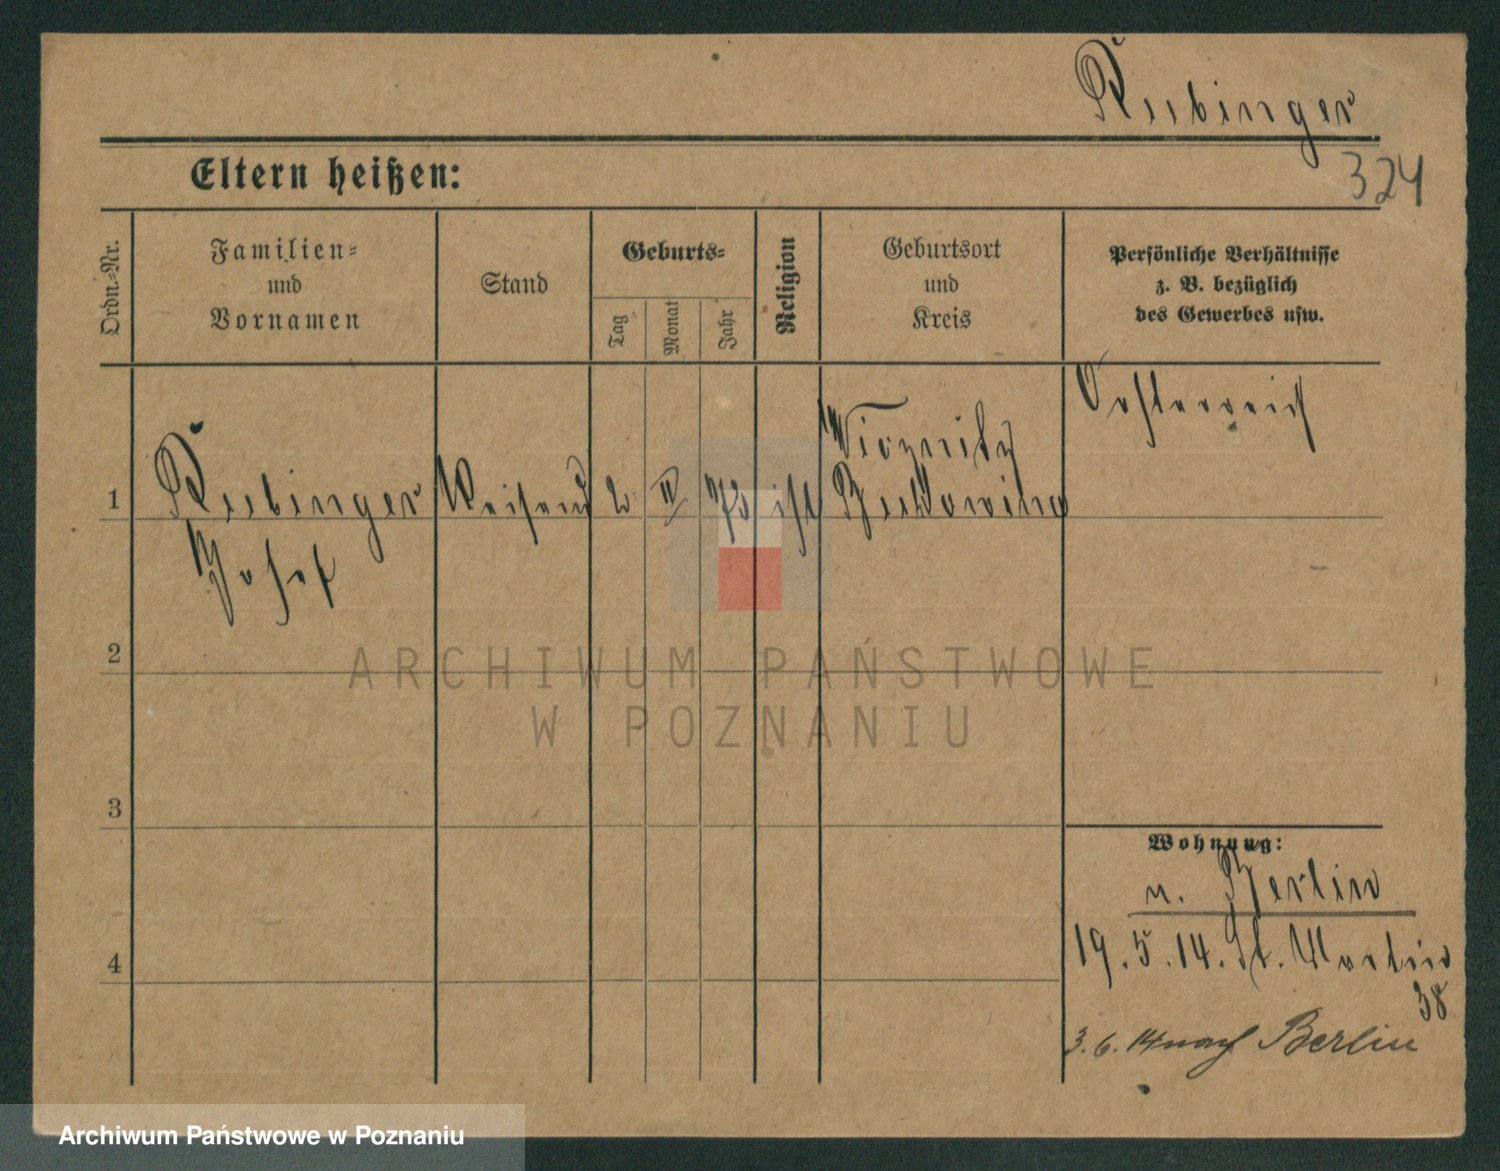 Rubinger
324
Eltern heißen:
Ordn.-Nr.
Familien- und Vornamen
Stand
Geburts-
Tag
Monat
Jahr
Religion
Geburtsort und Kreis
Persönliche Verhältnisse z. B. bezüglich des Gewerbes usw.
Oesterreich
Wiznitz
1 Rubinger Reisend 2 IV 73 isr Bukowina
Josef
2
3
Wohnung:
n. Berlin
19.5.14. St. Martin
4
38
3.6.14 nach Berlin
ARCHIWUM PAŃSTWOWE
W POZNANIU
Archiwum Państwowe w Poznaniu